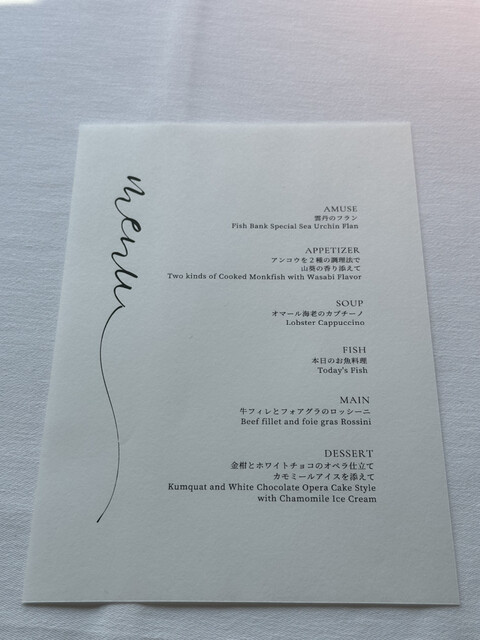 menu
AMUSE
雲丹のフラン
Fish Bank Special Sea Urchin Flan
APPETIZER
アンコウを２種の調理法で
山葵の香り添えて
Two kinds of Cooked Monkfish with Wasabi Flavor
SOUP
オマール海老のカプチーノ
Lobster Cappuccino
FISH
本日のお魚料理
Today's Fish
MAIN
牛フィレとフォアグラのロッシーニ
Beef fillet and foie gras Rossini
DESSERT
金柑とホワイトチョコのオペラ仕立て
カモミールアイスを添えて
Kumquat and White Chocolate Opera Cake Style
with Chamomile Ice Cream